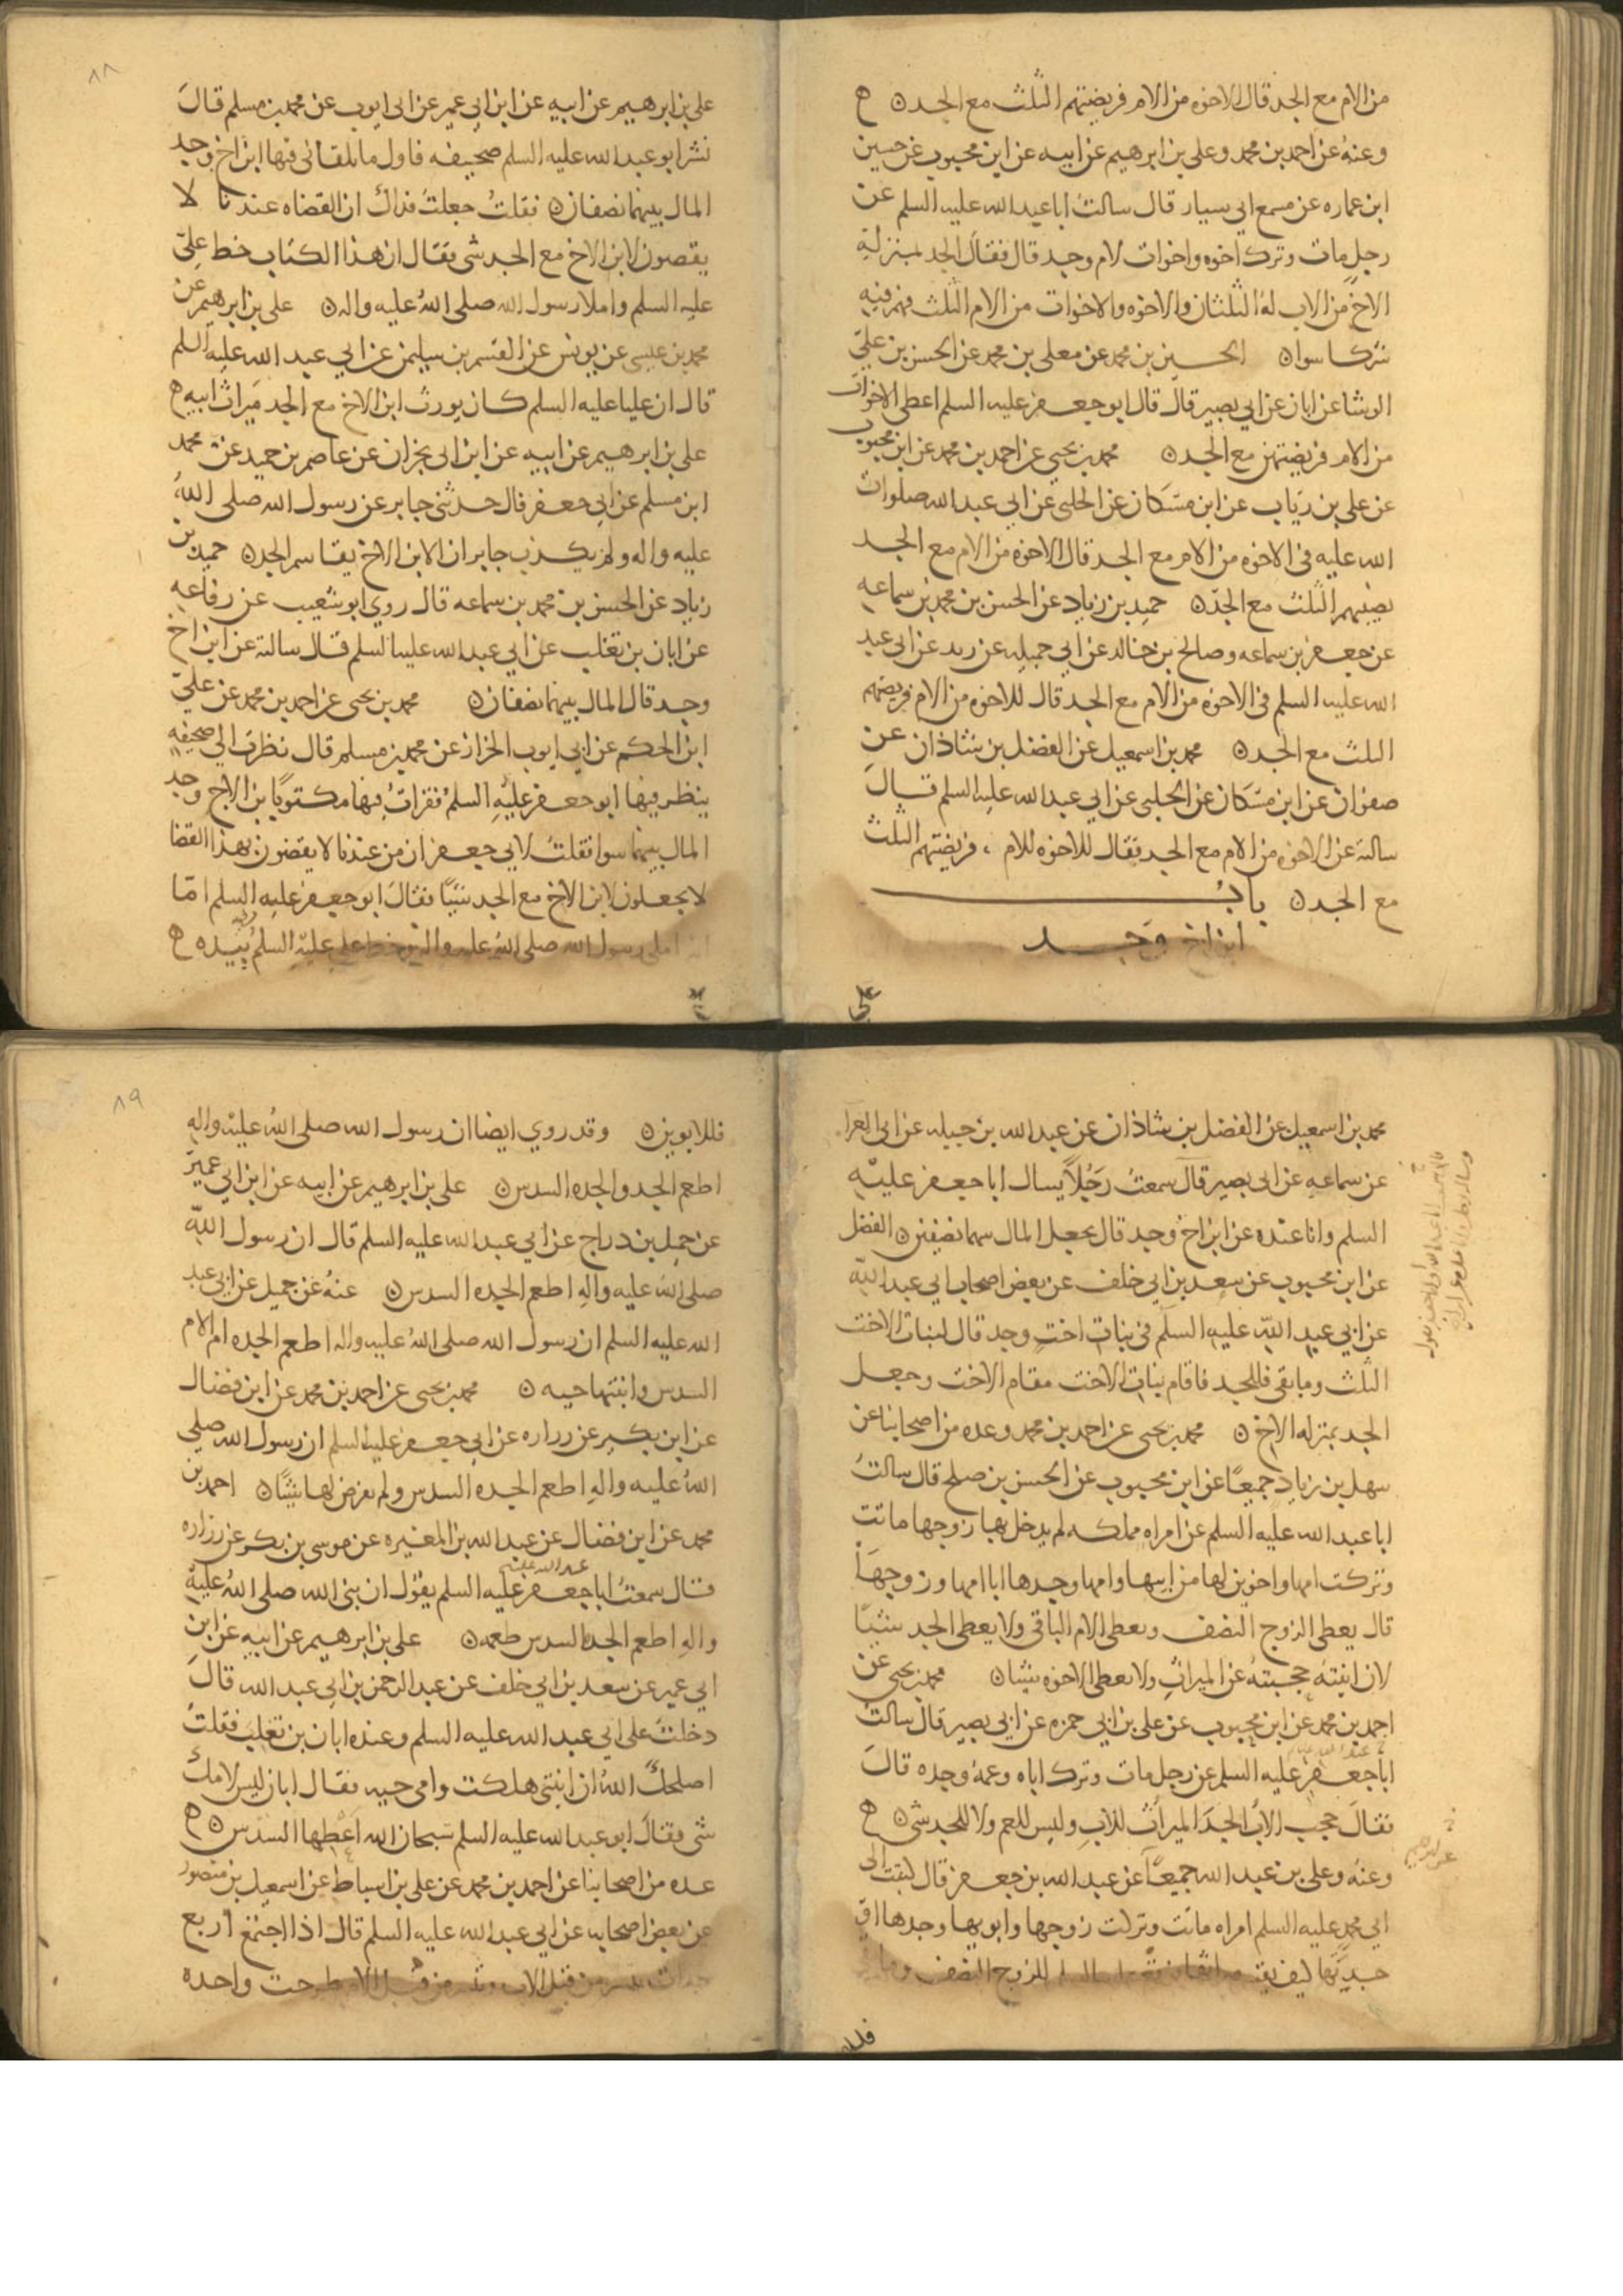 من الام مع الجد قال الاخوه من الام فريضتهم الثلث مع الجد ه
وعنهُ عن احمد بن محمد وعلي بن ابرهيم عن ابيه عن ابن محبوب عن حسين
ابن عماره عن مسمع ابي سيار قال سالتُ ابا عبد الله عليه السلم عن
رجل مات وترك اخوه واخوات لام وجد قال فقال الجد بمنزلة
الاخ من الاب لهُ الثلثان والاخوه والاخوات من الام الثلث فهم فيه
شركا سوا الحسين بن محمد عن معلى بن محمد عن الحسن بن علي
الوشا عن ابان عن ابي بصير قال قال ابو جعفر عليه السلم اعطى الاخوات
من الام فريضتهن مع الجد محمد بن يحيى عن احمد بن محمد عن ابن محبوب
عن علي بن رياب عن ابن مسكان عن الحلبي عن ابي عبد الله صلوات
الله عليه في الاخوه من الام مع الجد قال الاخوه من الام مع الجد
نصيبهم الثلث مع الجد حميد بن زياد عن الحسن بن محمد بن سماعه
عن جعفر بن سماعه وصالح بن خالد عن ابي جميله عن زيد عن ابي عبد
الله عليه السلم في الاخوه من الام مع الجد قال للاخوه من الام فريضتهم
الثلث مع الجد محمد بن اسمعيل عن الفضل بن شاذان عن
صفوان عن ابن مسكان عن الحلبي عن ابي عبد الله عليه السلم قال
سالته عن الاخوه من الام مع الجد فقال للاخوه للام فريضتهم الثلث
مع الجد بابُ
ابن اخ وجد
علي
٨٨
علي بن ابرهيم عن ابيه عن ابن ابي عمير عن ابي ايوب عن محمد بن مسلم قال
نشر ابو عبد الله عليه السلم صحيفه فاول ما تلقاني فيها ابن اخ وجد
المال بينهما نصفان فقلتُ جعلتُ فداك ان القضاه عندنا لا
يقضون لابن الاخ مع الجد شي فقال ان هذا الكتاب خط علي
عليه السلم واملا رسول الله صلى الله عليه واله علي بن ابرهيم عن
محمد بن عيسى عن يونس عن القسم بن سليمن عن ابي عبد الله عليه السلم
قال ان عليا عليه السلم كان يورث ابن الاخ مع الجد ميراث ابيه ه
علي بن ابرهيم عن ابيه عن ابن ابي نجران عن عاصم بن حميد عن محمد
ابن مسلم عن ابي جعفر قال حدثني جابر عن رسول الله صلى اللهُ
عليه واله ولم يكذب جابر ان الابن الاخ يقاسم الجد حميد بن
زياد عن الحسن بن محمد بن سماعه قال روى ابو شعيب عن رفاعه
عن ابان بن تغلب عن ابي عبد الله عليه السلم قال سالته عن ابن اخ
وجد قال المال بينهما نصفان محمد بن يحيى عن احمد بن محمد عن علي
ابن الحكم عن ابي ايوب الخزاز عن محمد بن مسلم قال نظرت الى صحيفه
ينظر فيها ابو جعفر عليه السلمُ فقراتُ فيها مكتوبًا بن الاخ وجد
المال بينهما سوا فقلتُ لابي جعفر ان من عندنا لا يقضون بهذا القضا
لا يجعلون لابن الاخ مع الجد شيئًا فقال ابو جعفر عليه السلم امّا
انه املى رسول الله صلى الله عليه واله وخط علي عليه السلم بيده ه
محمد بن اسمعيل عن الفضل بن شاذان عن عبد الله بن جبيله عن ابي المغرا
عن سماعه عن ابي بصير قال سمعتُ رجُلاً يسال ابا جعفر عليه
السلم وانا عنده عن ابن اخ وجد قال يجعل المال بينهما نصفين الفضل
عن ابن محبوب عن سعد بن ابي خلف عن بعض اصحاب ابي عبد الله
عن ابي عبد الله عليه السلم في بنات اخت وجد قال لبنات الاخت
الثلث وما بقي فللجد فاقام بنات الاخت مقام الاخت وجعل
الجد بمنزله الاخ محمد بن يحيى عن احمد بن محمد وعده من اصحابنا عن
سهل بن زياد جميعًا عن ابن محبوب عن الحسن بن صلح قال سالتُ
ابا عبد الله عليه السلم عن امراه مملكه لم يدخل بها زوجها ماتت
وتركت امها واخوين لها من ابيها وامها وجدها ابا امها وزوجها
قال يعطى الزوج النصف وتعطى الام الباقي ولا يعطى الجد شيئًا
لان ابنتهُ حجبتهُ عن الميراث ولا يعطى الاخوه شيئا محمد بن يحيى عن
احمد بن محمد عن ابن محبوب عن علي بن ابي حمزه عن ابي بصير قال سالتُ
ابا جعفر عليه السلم عن رجل مات وترك اباه وعمهُ وجده قال
فقال حجب الابُ الجدَ الميراثُ للاب وليس للعم ولا للجد شي ه
وعنهُ وعلي بن عبد الله جميعًا عن عبد الله بن جعفر قال كتبت الى
ابي محمد عليه السلم امراه ماتت وتركت زوجها وابويها وجدها او
جدتها كيف يقسم ميراثها فوقع عليه السلم للزوج النصف وما بقي
٨٩
فللابوين وقد روي ايضا ان رسول الله صلى اللهُ عليه واله
اطعم الجد والجده السدس علي بن ابرهيم عن ابيه عن ابن ابي عمير
عن جميل بن دراج عن ابي عبد الله عليه السلم قال ان رسول الله
صلى الله عليه واله اطعم الجده السدس عنهُ عن جميل عن ابي عبد
الله عليه السلم ان رسول الله صلى اللهُ عليه واله اطعم الجده ام الام
السدس وابنتها حيه محمد بن يحيى عن احمد بن محمد عن ابن فضال
عن ابن بكير عن زراره عن ابي جعفر عليه السلم ان رسول الله صلى
اللهُ عليه واله اطعم الجده السدس ولم يفرض لها شيئًا احمد بن
محمد عن ابن فضال عن عبد الله بن المغيره عن موسى بن بكر عن زراره
قال سمعتُ ابا جعفر عليه السلم يقول ان نبي الله صلى اللهُ عليه
واله اطعم الجد السدس طعمه علي بن ابرهيم عن ابيه عن ابن
ابي عمير عن سعد بن ابي خلف عن عبد الرحمن بن ابي عبد الله قال
دخلتُ على ابي عبد الله عليه السلم وعنده ابان بن تغلب فقلتُ
اصلحكَ اللهُ ان ابنتي هلكت وامي حيه فقال ابان ليس لامك
شي فقال ابو عبد الله عليه السلم سبحان الله اعطها السدس ه
عده من اصحابنا عن احمد بن محمد عن علي بن اسباط عن اسمعيل بن منصور
عن بعض اصحابه عن ابي عبد الله عليه السلم قال اذا اجتمع اربع
جدات ثنتين من قبل الاب وثنتين من قبل الام طرحت واحده